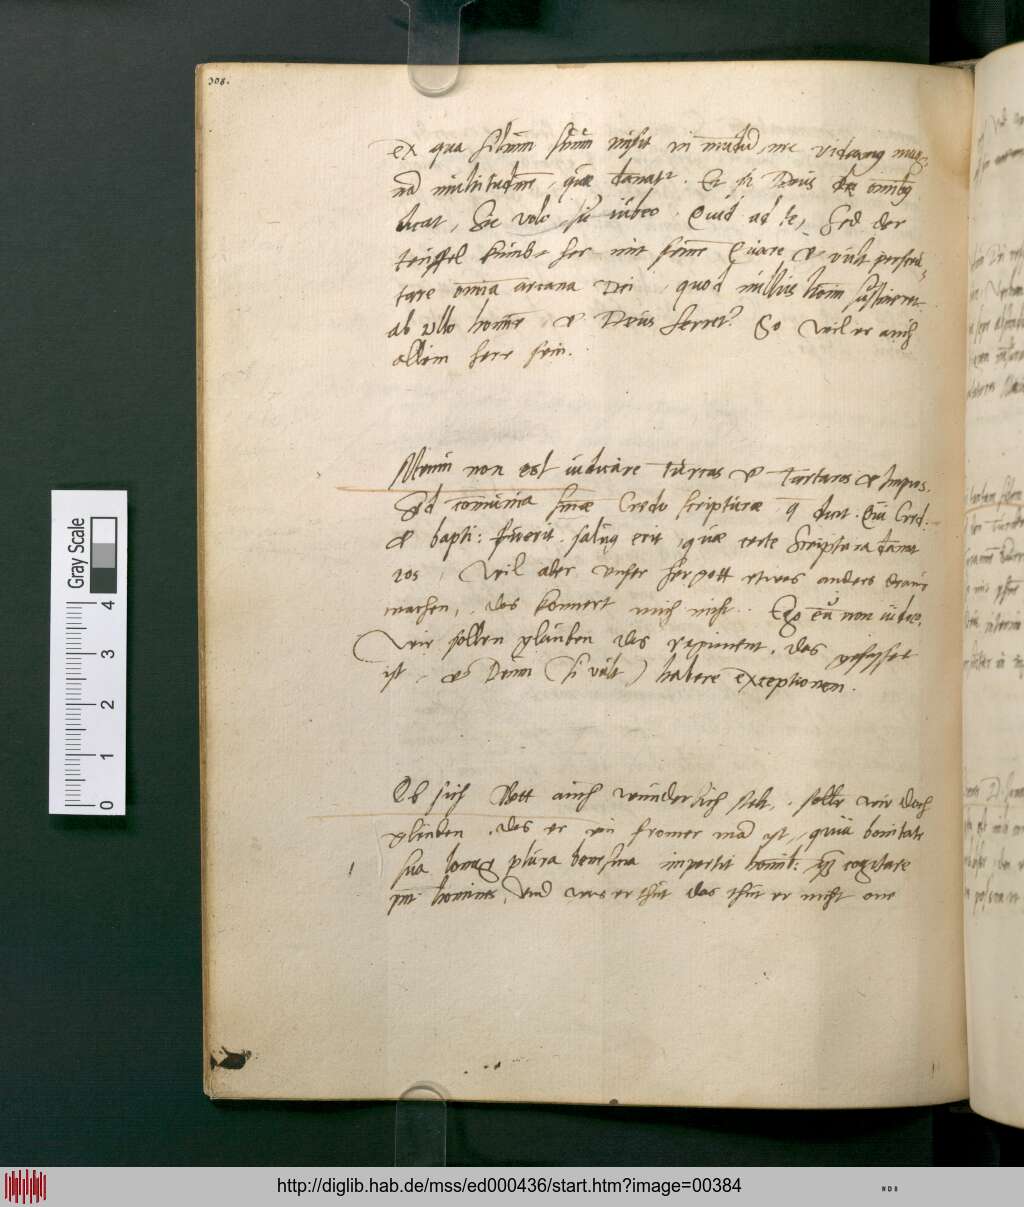 308.
ex qua filium suum misit in mundū, ne videamꝰ mag¬
nā multitudinem, quae damnatur. Et si Deus de omnibꝰ
dicat, Sic volo, sic iubeo. Quid ad te, Sed der
teuffel kumbt her mit seinem Quare et vult perscru¬
tare omnia arcana Dei, quod nullus hominum sustineret
ab vllo homine, et Deus ferret? So wil er auch
allein herr sein.
Meum non est iudicare turcas et tartaros et Impios.
Sed communia sunt Credo scripturae, q dicit. Qui Cred:
et bapti: fuerit, saluꝰ erit, quae certe Scriptura damnat
eos, Wil aber vnser herrgott etwas anders draus
machen, das kommert mich nicht. Ego eum non iudico.
Wir sollen glauben das regiment, das gefasset
ist, et Deum (si vult) habere exceptionem.
Ob sich Gott auch wunderlich stelt, sollen wir doch
glauben, das er ein fromer man ist, quia bonitate
sua longe plura beneficia impertit homi: quam cogitare
possunt homines, Vnd was er thut das thut er nicht one
Gray Scale
0 1 2 3 4
http://diglib.hab.de/mss/ed000436/start.htm?image=00384